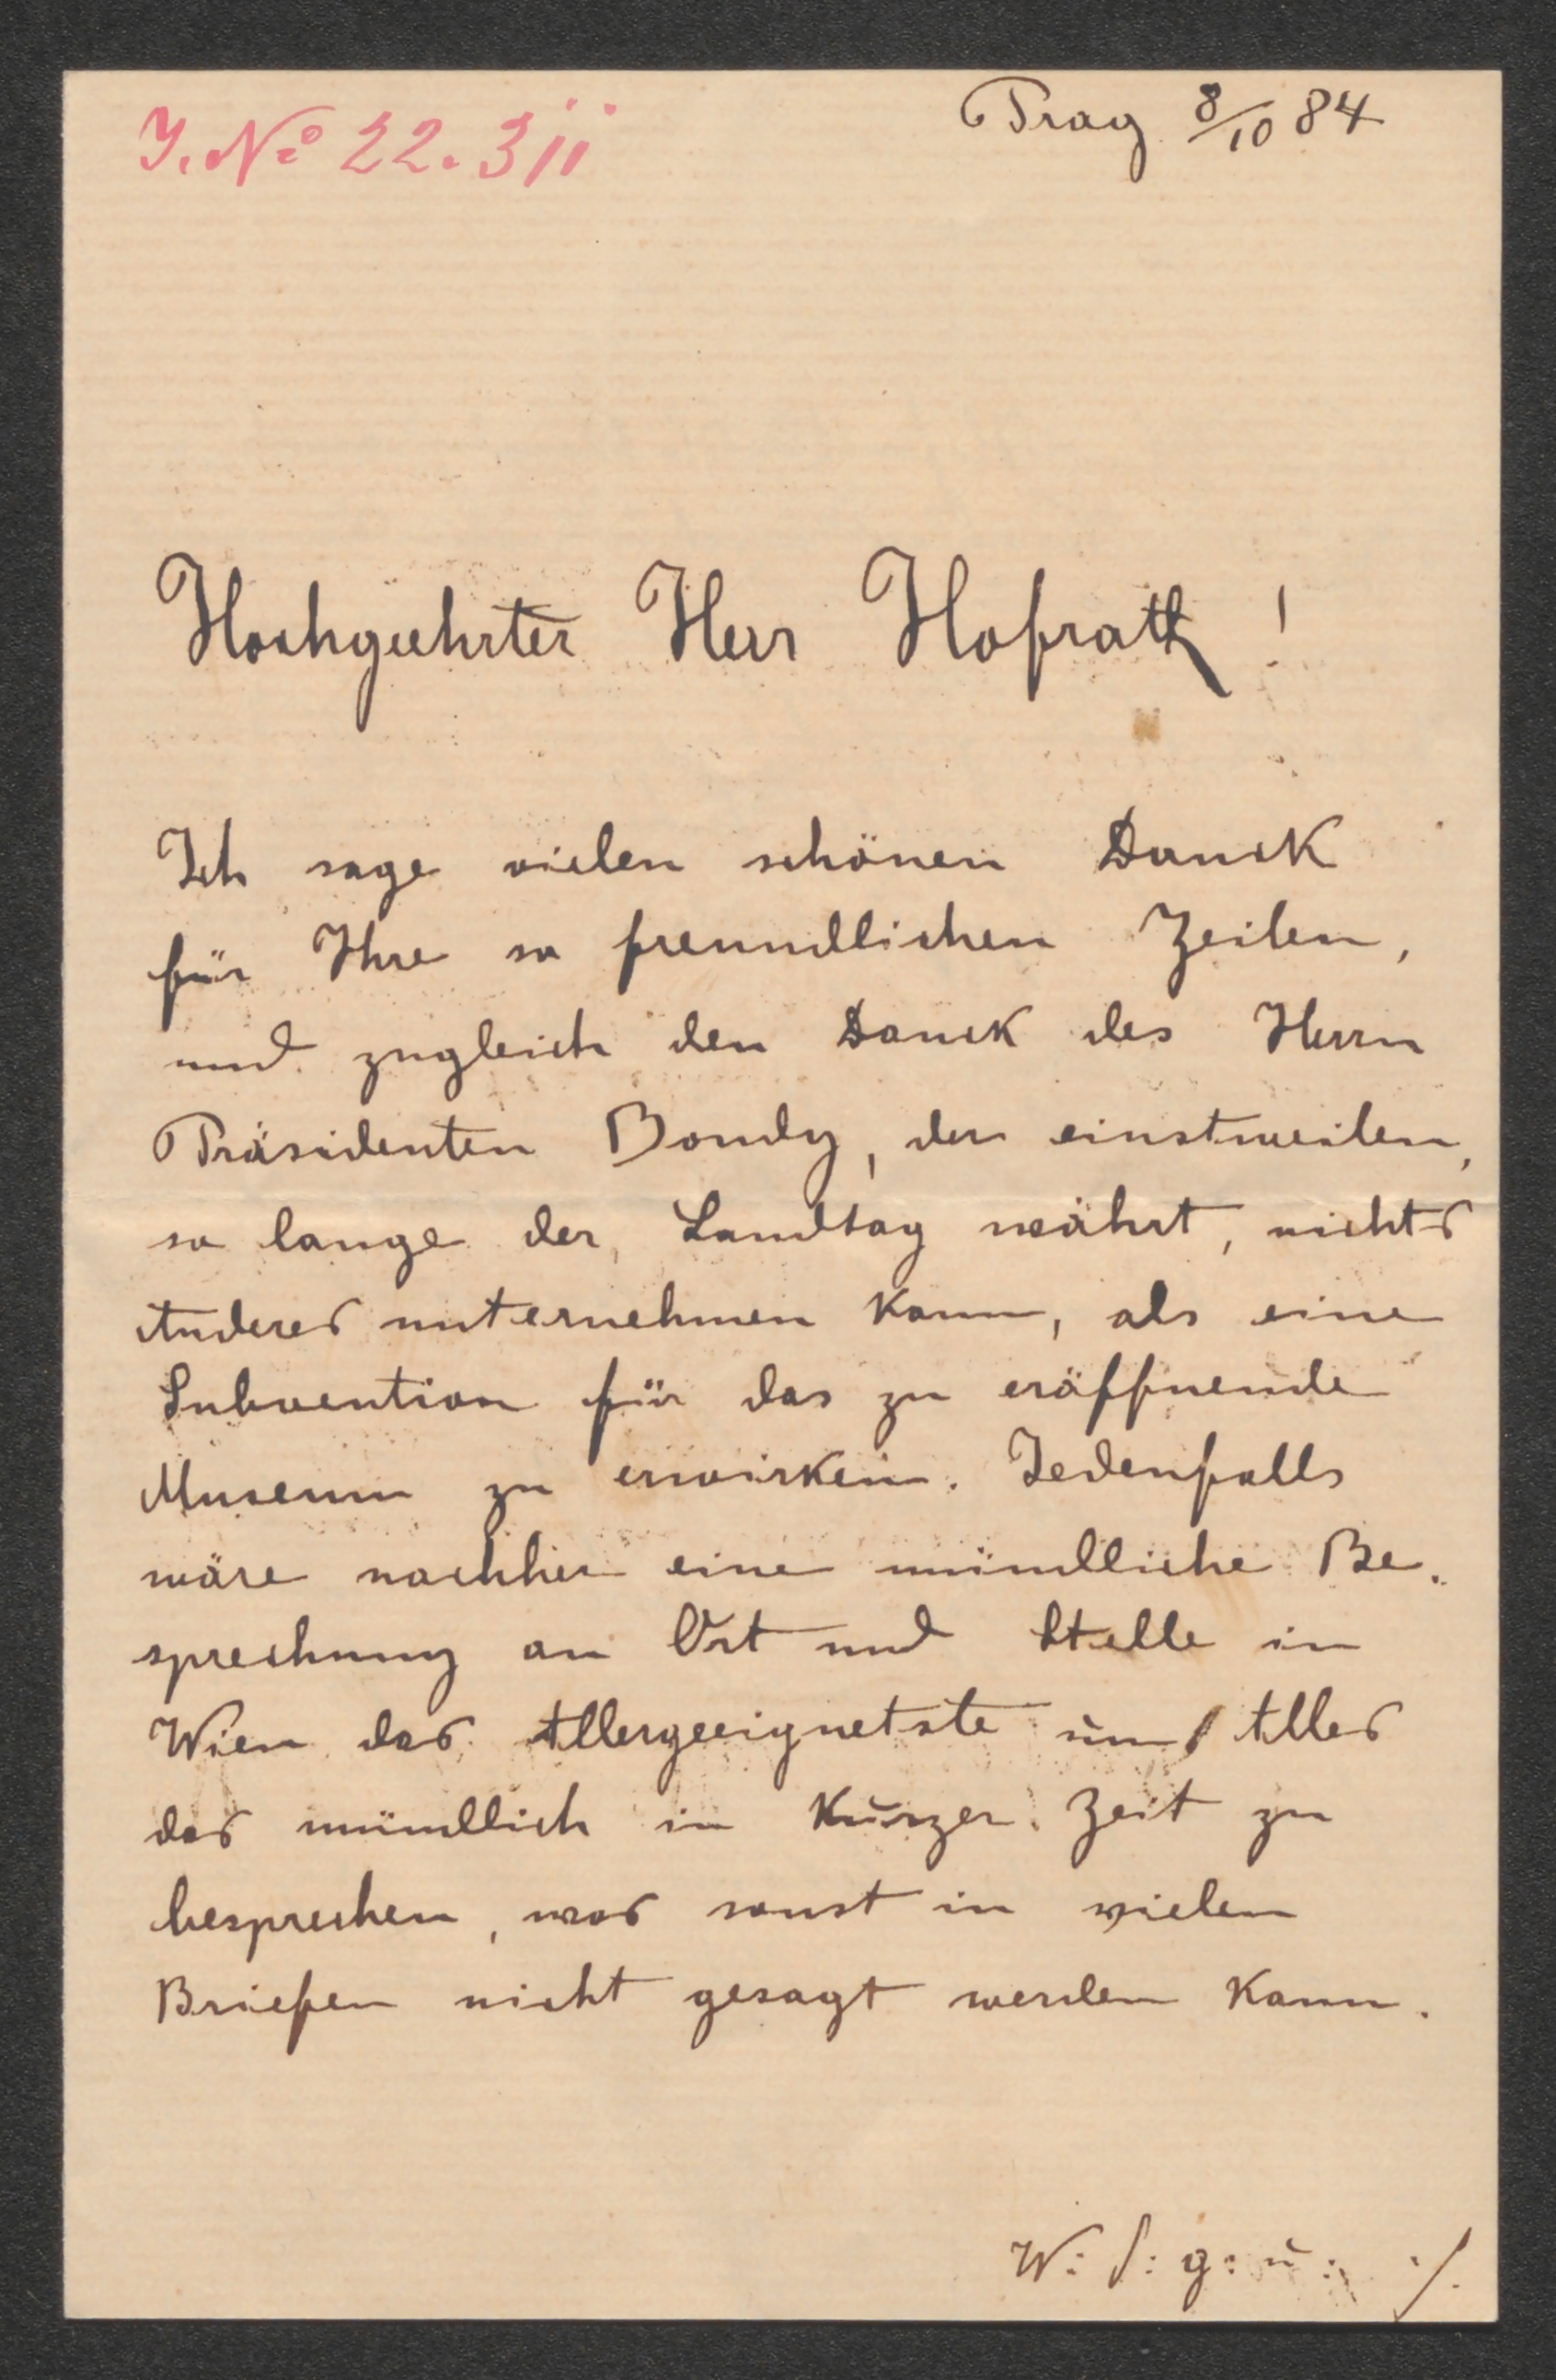 Prag 8/10 84
I. No 22.311
Hochgeehrter Herr Hofrath!
Ich sage vielen schönen Danck
für Ihre so freundlichen Zeilen,
und zugleich den Danck des Herrn
Präsidenten Bondy, der einstweilen,
so lange der Landtag währt, nichts
Anderes unternehmen kann, als eine
Subvention für das zu eröffnende
Museum zu erwirken. Jedenfalls
wäre nachher eine mündliche Be-
sprechung an Ort und Stelle in
Wien das Allergeeignetste um Alles
das mündlich in kurzer Zeit zu
besprechen, was sonst in vielen
Briefen nicht gesagt werden kann.
W: S: g: u: ./.